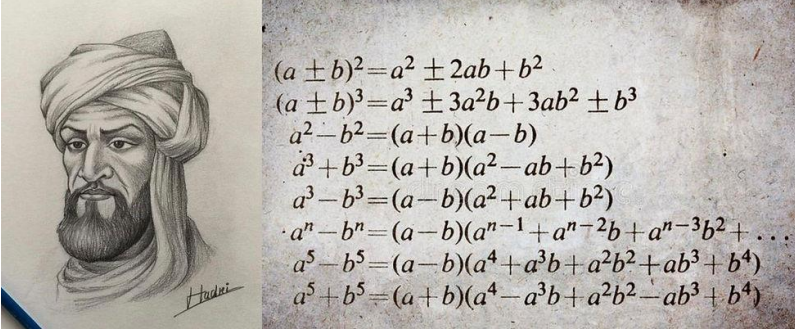 (a ± b)²=a² ± 2ab+b²
(a ± b)³=a³ ± 3a²b+3ab² ± b³
a²−b²=(a+b)(a−b)
a³+b³=(a+b)(a²−ab+b²)
a³−b³=(a−b)(a²+ab+b²)
aⁿ−bⁿ=(a−b)(aⁿ⁻¹+aⁿ⁻²b+aⁿ⁻³b²+...
a⁵−b⁵=(a−b)(a⁴+a³b+a²b²+ab³+b⁴)
a⁵+b⁵=(a+b)(a⁴−a³b+a²b²−ab³+b⁴)